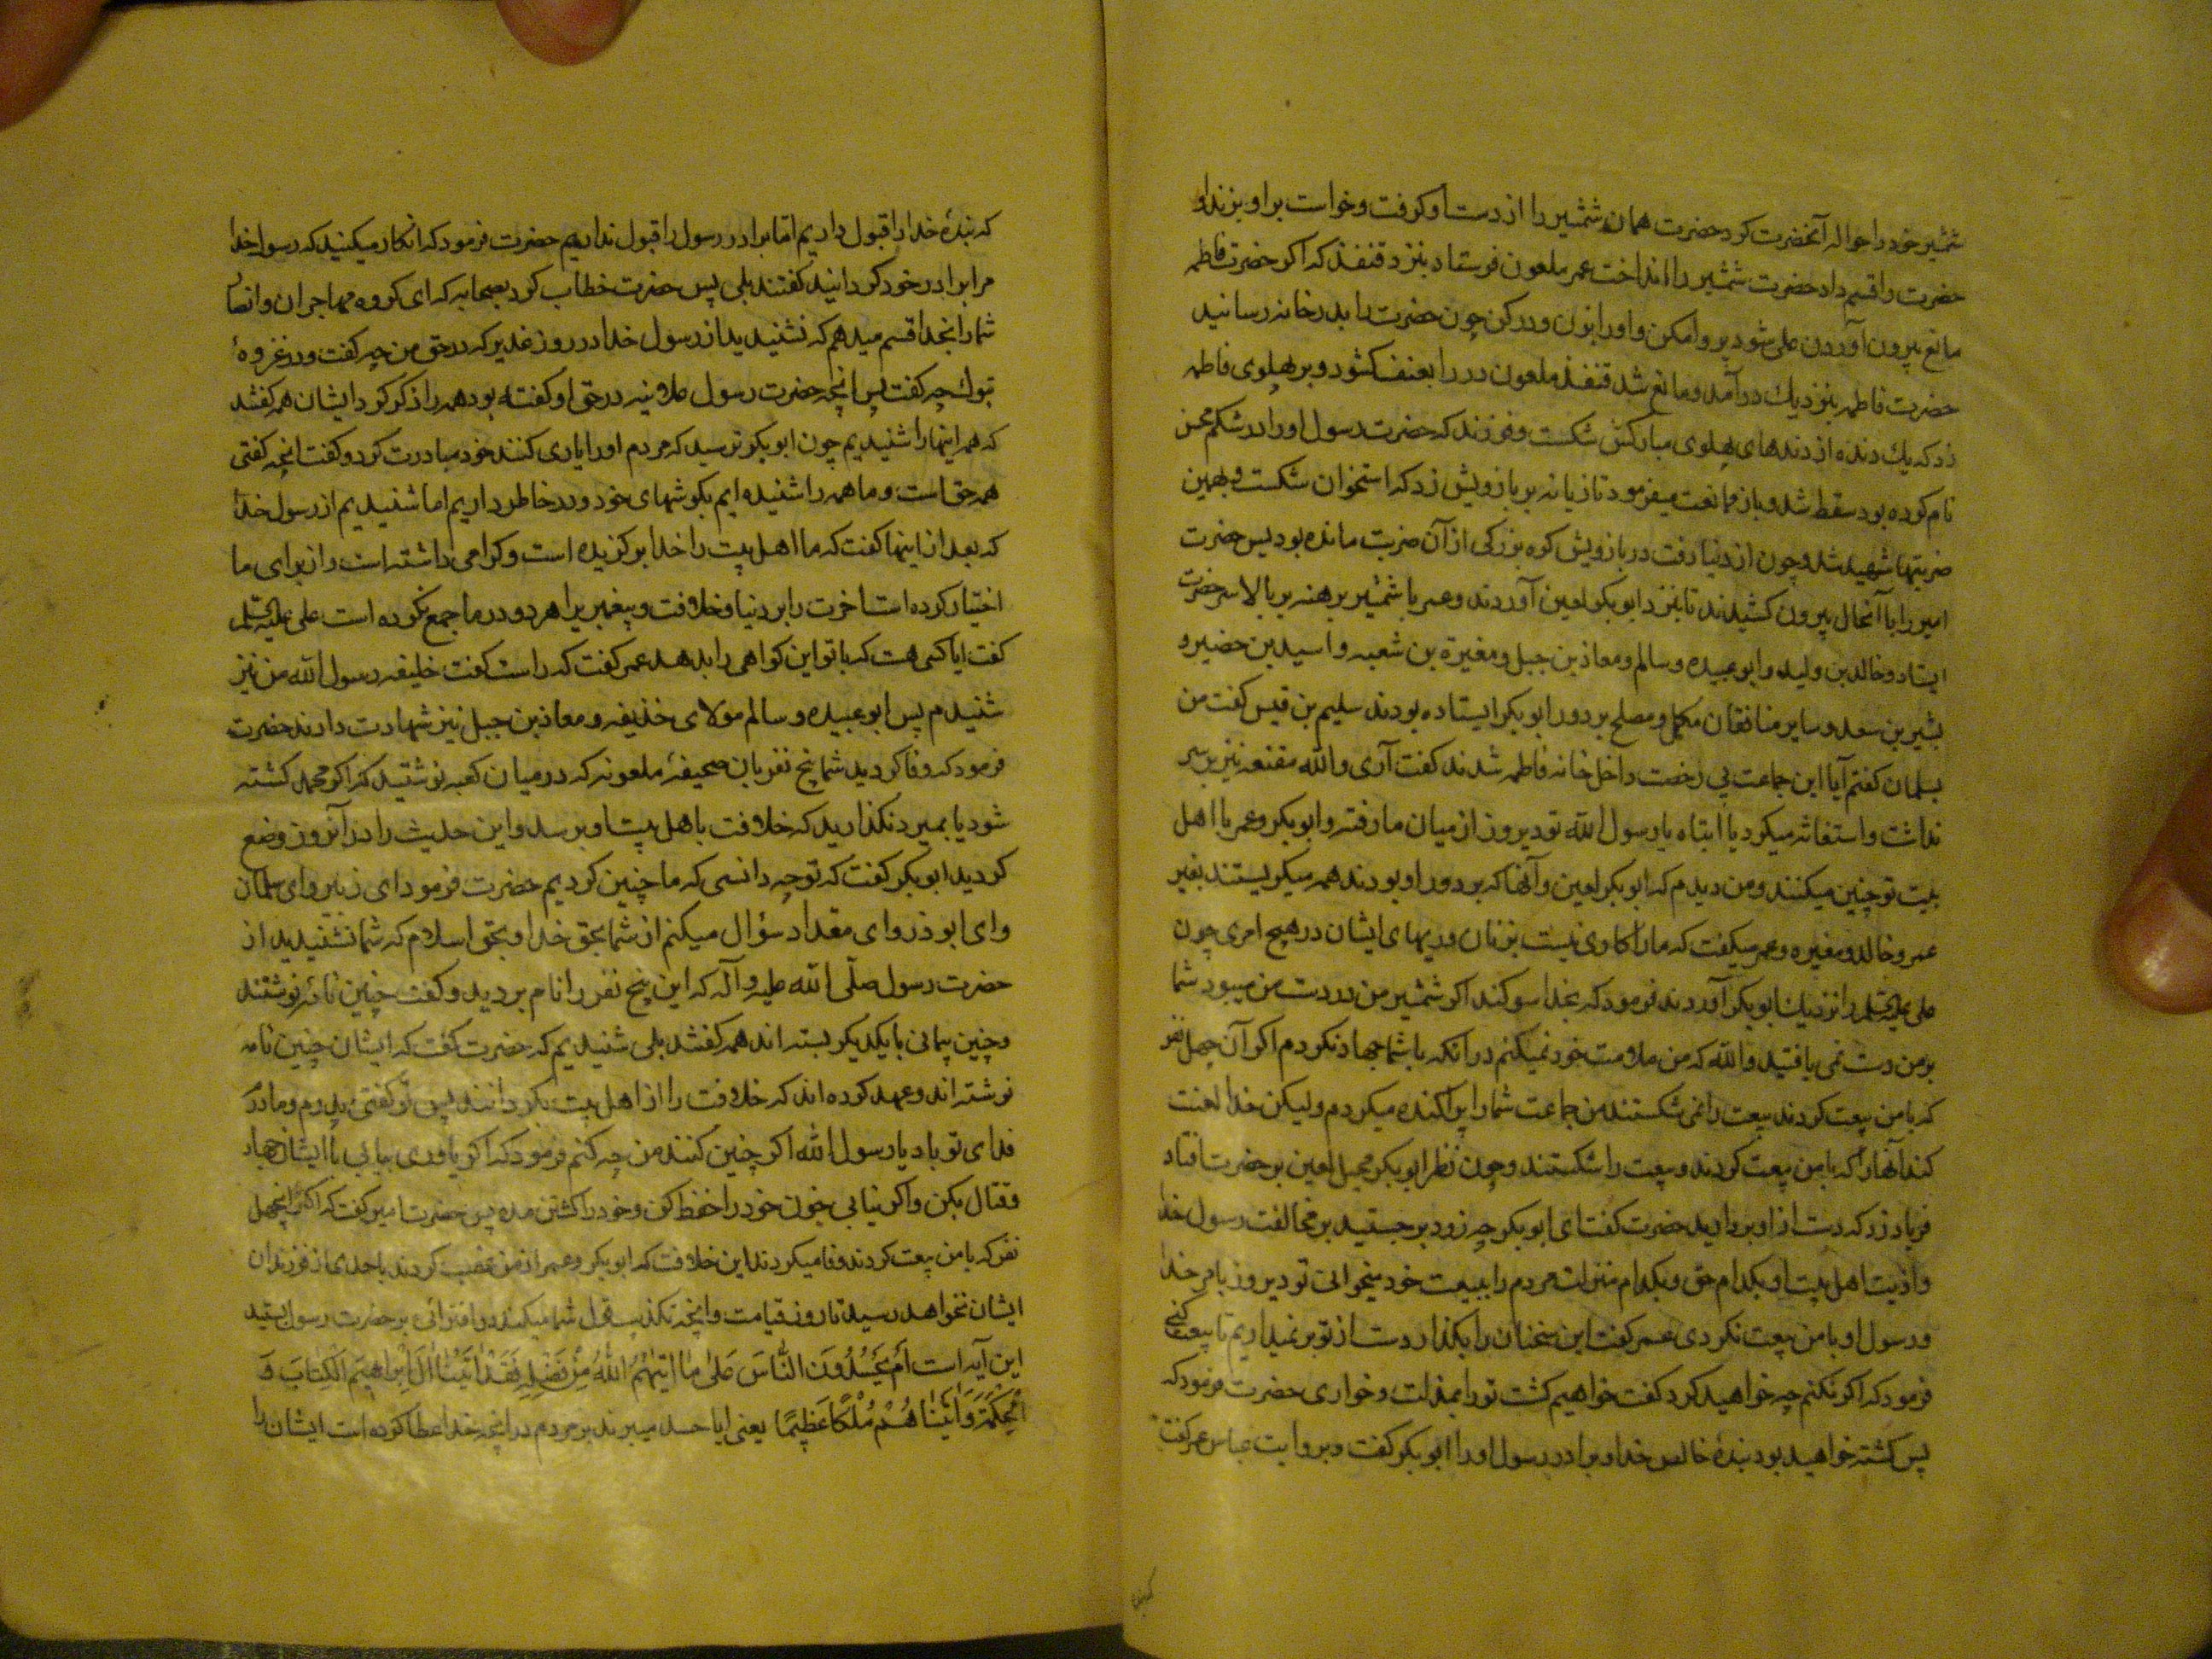 شمشیر خود را حواله آنحضرت کرد حضرت همان شمشیر را از دست او کرفت و خواست بر او بزند او
حضرت را قسم داد حضرت شمشیر را انداخت عمر ملعون فرستاد بنزد قنفذ که اکر حضرت فاطمه
مانع بیرون آوردن علی شود پروا مکن و او را بزن و در کن چون حضرت را بدر خانه رسانید
حضرت فاطمه بنزدیک در آمد و مانع شد قنفذ ملعون در را بعنف کشود و بر پهلوی فاطمه
زد که یک دنده از دندهای پهلوی مبارکش شکست و فرزند که حضرت رسول او را در شکم محسن
نام کرده بود سقط شد و باز ممانعت میفرمود تازیانه بر بازویش زد که استخوان شکست و بهمین
ضربتها شهید شد و چون از دنیا رفت در بازویش کره بزرکی از آن ضربت مانده بود پس حضرت
امیر را با آنحال بیرون کشیدند تا بنزد ابوبکر لعین آوردند و عمر با شمشیر برهنه بر بالا سر حضرت
ایستاد و خالد بن ولید و ابو عبیده و سالم و معاذ بن جبل و مغیرة بن شعبه و اسید بن حضیر و
بشیر بن سعد و سایر منافقان مکمل و مصلح بر دور ابوبکر ایستاده بودند سلیم بن قیس کفت من
بسلمان کفتم آیا این جماعت بی رخصت داخل خانه فاطمه شدند کفت آری والله مقنعه نیز بر سر
نداشت و استغاثه میکرد یا ابتاه یا رسول الله تو دیروز از میان ما رفته و ابوبکر و عمر با اهل
بیت تو چنین میکنند و من دیدم که ابوبکر لعین و آنها که بر دور او بودند همه میکریستند بغیر
عمر و خالد و مغیره و عمر میکفت که ما را کاری نیست بزنان و ریهای ایشان در هیچ امری چون
علی علیه السلم را نزدیک ابوبکر آوردند فرمود که بخدا سوکند اکر شمشیر من در دست من میبود شما
بر من دست نمی یافتید والله که من ملامت خود نمیکنم در انکه با شما جهاد نکردم اکر آن چهل نفر
که با من بیعت کردند بیعت را نمی شکستند من جماعت شما را پراکنده میکردم ولیکن خدا لعنت
کند آنها را که با من بیعت کردند و بیعت را شکستند و چون نظر ابوبکر محیل لعین بر حضرت افتاد
فریاد زد که دست از او بردارید حضرت کفت ای ابوبکر چه زود بر جستید بر مخالفت رسول خدا
و اذیت اهل بیت او بکدام حق و بکدام منزلت مردم را ببیعت خود میخوانی تو دیروز بامر خدا
و رسول او با من بیعت نکردی عمر کفت این سخنان را بکذار دست از تو بر نمیداریم تا بیعت کنی
فرمود که اکر نکنم چه خواهید کرد کفت خواهیم کشت تو را بمذلت و خواری حضرت فرمود که
پس کشته خواهید بود بندۀ خالص خدا و برادر رسول او را ابوبکر کفت و بروایت عباس عمر کفت
که بندۀ خدا را قبول داریم اما برادر رسول را قبول نداریم حضرت فرمود که انکار میکنید که رسول خدا
مرا برادر خود کردانید کفتند بلی پس حضرت خطاب کرد بصحابه که ای کروه مهاجران و انصار
شما را بخدا قسم میدهم که نشنیدید از رسول خدا در روز غدیر که در حق من چه کفت و در غزوۀ
تبوک چه کفت پس انچه حضرت رسول علانیه در حق او کفته بود همه را ذکر کرد ایشان همه کفتند
که همه اینها را شنیدیم چون ابوبکر ترسید که مردم او را یاری کنند خود مبادرت کرد و کفت انچه کفتی
همه حق است و ما همه را شنیده ایم بکوشهای خود و در خاطر داریم اما شنیدیم از رسول خدا
که بعد از اینها کفت که ما اهل بیت را خدا برکزیده است و کرامی داشته است و از برای ما
اختیار کرده است اخرت را بر دنیا و خلافت و پیغمبری را هر دو در ما جمع نکرده است علی علیه السلم
کفت ایا کسی هست که با تو این کواهی را بدهد عمر کفت که راست کفت خلیفه رسول الله من نیز
شنیدم پس ابو عبیده و سالم مولای حذیفه و معاذ بن جبل نیز شهادت دادند حضرت
فرمود که وفا کردید شما پنج نفر بان صحیفۀ ملعونه که در میان کعبه نوشتید که اکر محمد کشته
شود یا بمیرد نکذارید که خلافت باهل بیت او برسد و این حدیث را در آنروز وضع
کردید ابوبکر کفت که تو چه دانسی که ما چنین کردیم حضرت فرمود ای زبیر و ای سلمان
و ای ابوذر و ای مقداد سؤال میکنم از شما بحق خدا و بحق اسلام که شما نشنیدید از
حضرت رسول صلّی الله علیه و آله که این پنج نفر را نام بردید و کفت چنین نامه نوشتند
و چنین پیمانی با یکدیکر بسته اند همه کفتند بلی شنیدیم که حضرت کفت که ایشان چنین نامه
نوشته اند و عهد کرده اند که خلافت را از اهل بیت بکردانند پس تو کفتی پدرم و مادرم
فدای تو باد یا رسول الله اکر چنین کنند من چه کنم فرمود که اکر یاوری بیابی با ایشان جهاد
و قتال بکن و اکر نیابی خون خود را حفظ کن و خود را کشتن مده پس حضرت امیر کفت که اکر انچهل
نفر که با من بیعت کردند وفا میکردند این خلافت که ابوبکر و عمر از من غصب کردند باحدی از فرزندان
ایشان نخواهد رسید تا روز قیامت و انچه تکذیب قول شما میکند در افترائی بر حضرت رسول بستید
این آیه است اَمْ یَحْسُدُونَ النّاسَ عَلی ما اتیهُمُ اللّهُ مِنْ فَضْلِهِ فَقَدْ اتَیْنا الَ اِبْراهیمَ الْکِتابَ وَ
الْحِکْمَةَ وَ اتَیْناهُمْ مُلْکًا عَظیمًا یعنی ایا حسد میبرند بر مردم در انچه خدا عطا کرده است ایشان را